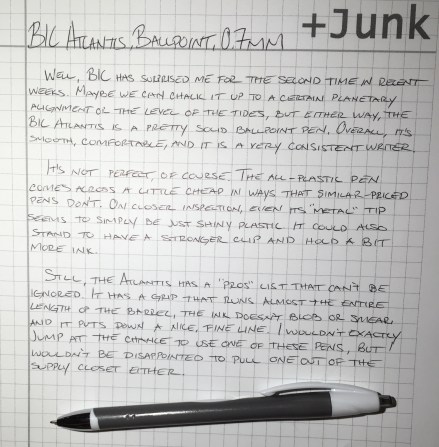 +Junk
BIC ATLANTIS, BALLPOINT, 0.7MM
WELL, BIC HAS SURPRISED ME FOR THE SECOND TIME IN RECENT
WEEKS. MAYBE WE CAN CHALK IT UP TO A CERTAIN PLANETARY
ALIGNMENT OR THE LEVEL OF THE TIDES, BUT EITHER WAY, THE
BIC ATLANTIS IS A PRETTY SOLID BALLPOINT PEN. OVERALL, IT'S
SMOOTH, COMFORTABLE, AND IT IS A VERY CONSISTENT WRITER.
IT'S NOT PERFECT, OF COURSE. THE ALL-PLASTIC PEN
COMES ACROSS A LITTLE CHEAP IN WAYS THAT SIMILAR-PRICED
PENS DON'T. ON CLOSER INSPECTION, EVEN ITS "METAL" TIP
SEEMS TO SIMPLY BE JUST SHINY PLASTIC. IT COULD ALSO
STAND TO HAVE A STRONGER CLIP AND HOLD A BIT
MORE INK.
STILL, THE ATLANTIS HAS A "PROS" LIST THAT CAN'T BE
IGNORED. IT HAS A GRIP THAT RUNS ALMOST THE ENTIRE
LENGTH OF THE BARREL, THE INK DOESN'T BLOB OR SMEAR,
AND IT PUTS DOWN A NICE, FINE LINE. I WOULDN'T EXACTLY
JUMP AT THE CHANCE TO USE ONE OF THESE PENS, BUT I
WOULDN'T BE DISAPPOINTED TO PULL ONE OUT OF THE
SUPPLY CLOSET EITHER.